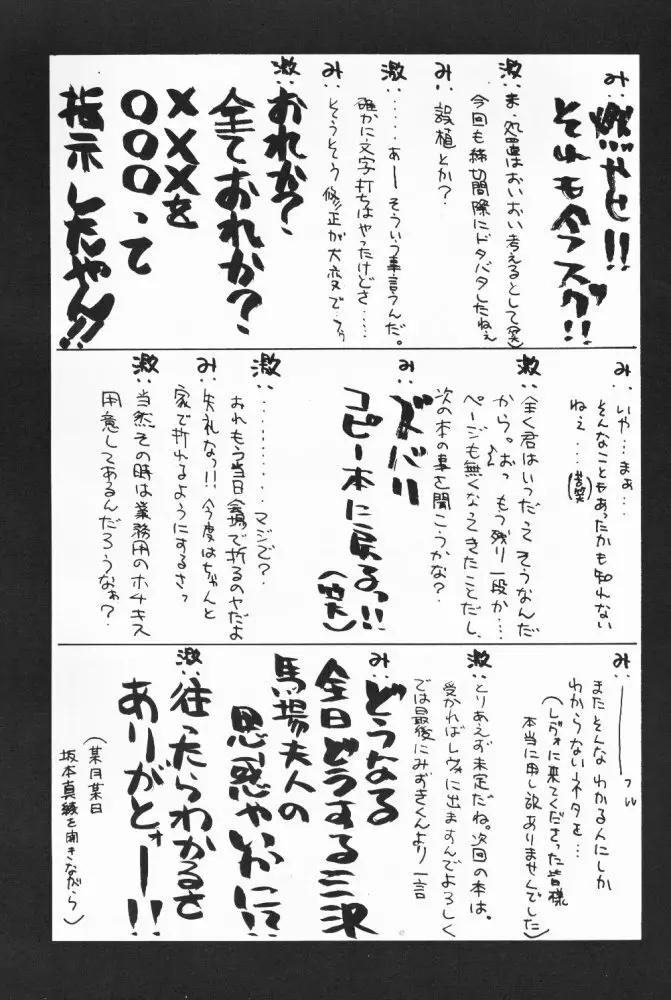 み:燃やせ!!
それも今スグ!!
激:ま、処置はおいおい考えるとして(笑)
今回も締切間際にドタバタしたねぇ
み:誤植とか?
激:……あーそういう事言うんだ。
確かに文字打ちはやったけどさ……
み:そうそう修正が大変で…
激:おれか?
全ておれか?
×××を
○○○って
指示したやん!!
み:いや…まぁ…
そんなこともあったかも知れない
ねぇ…(苦笑)
激:全く君はいつだってそうなんだ
から。おっもう残り一段か……
ページも無くなってきたことだし、
次の本の事を聞こうかな?
み:ズバリ
コピー本に戻る!!
激:…………マジで?
おれもう当日会場で折るのヤだよ
み:失礼なっ!!今度はちゃんと
家で折れるようにするさっ
激:当然その時は業務用のホチキス
用意してあるんだろうなぁ?
み:――――フッ
またそんなわかる人にしか
わからないネタを…
(レヴォに来てくださった皆様
本当に申し訳ありませんでした)
激:とりあえず未定だね。次回の本は。
受かればレヴォに出ますんでよろしく
では最後にみずきくんより一言
み:どうなる
全日どうする三沢
馬場夫人の
思惑やいかに!?
激:往ったらわかるさ
ありがとォー!!
(某月某日
坂本真綾を聞きながら)